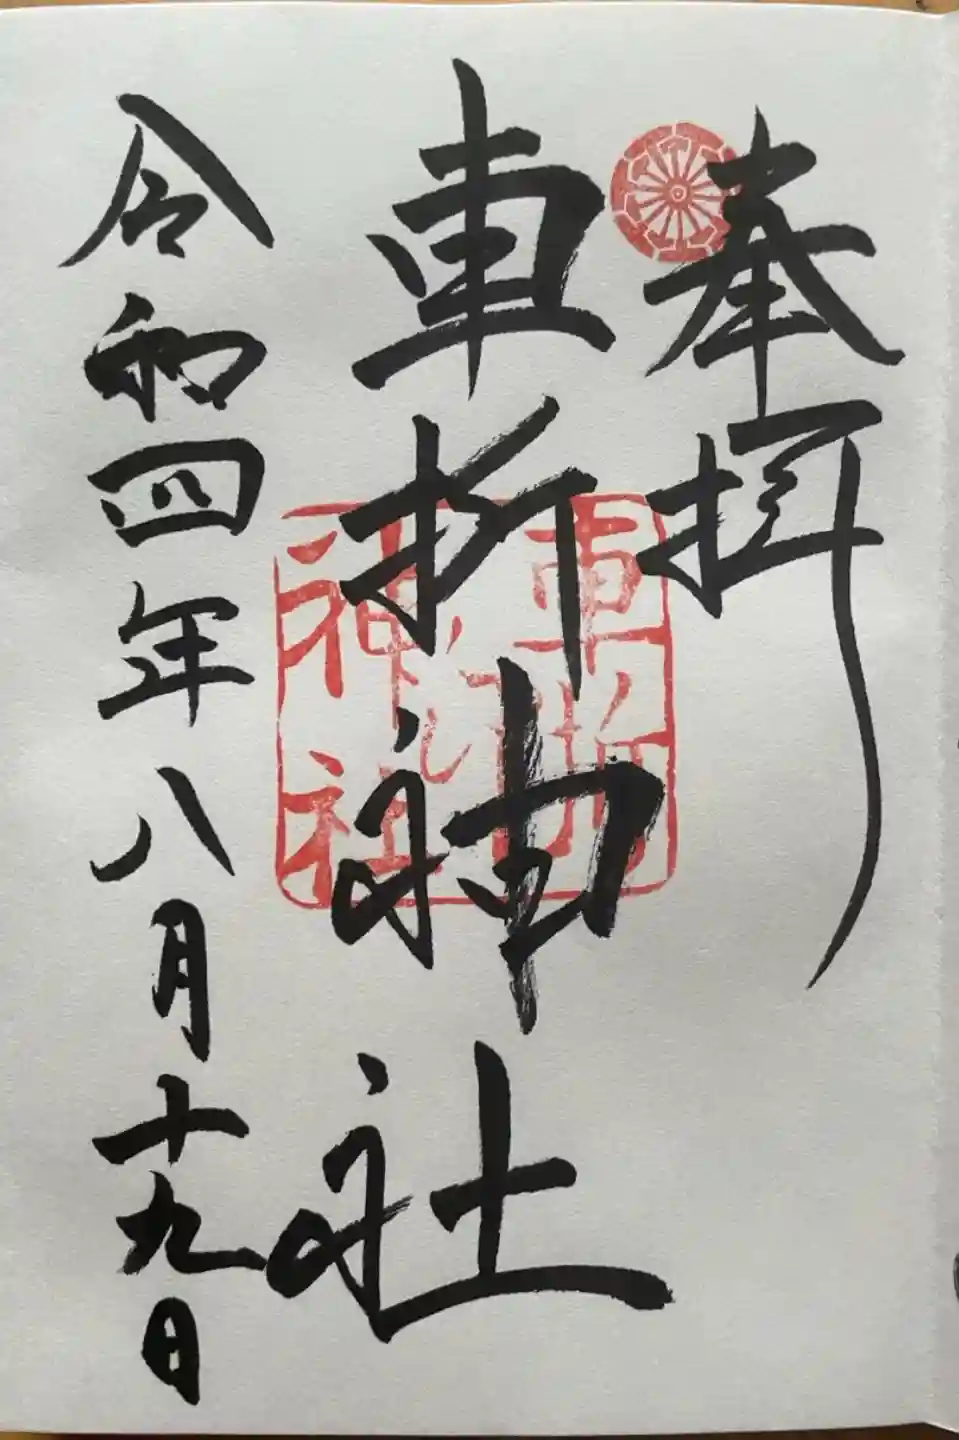 奉拝
車折神社
車折神社
令和四年八月十九日